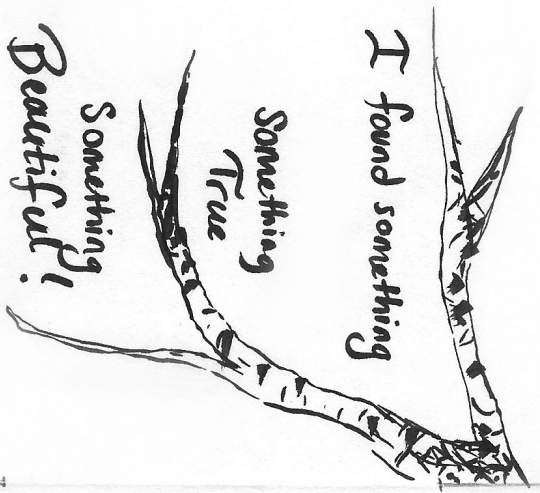 I found something
Something
True
Something
Beautiful!